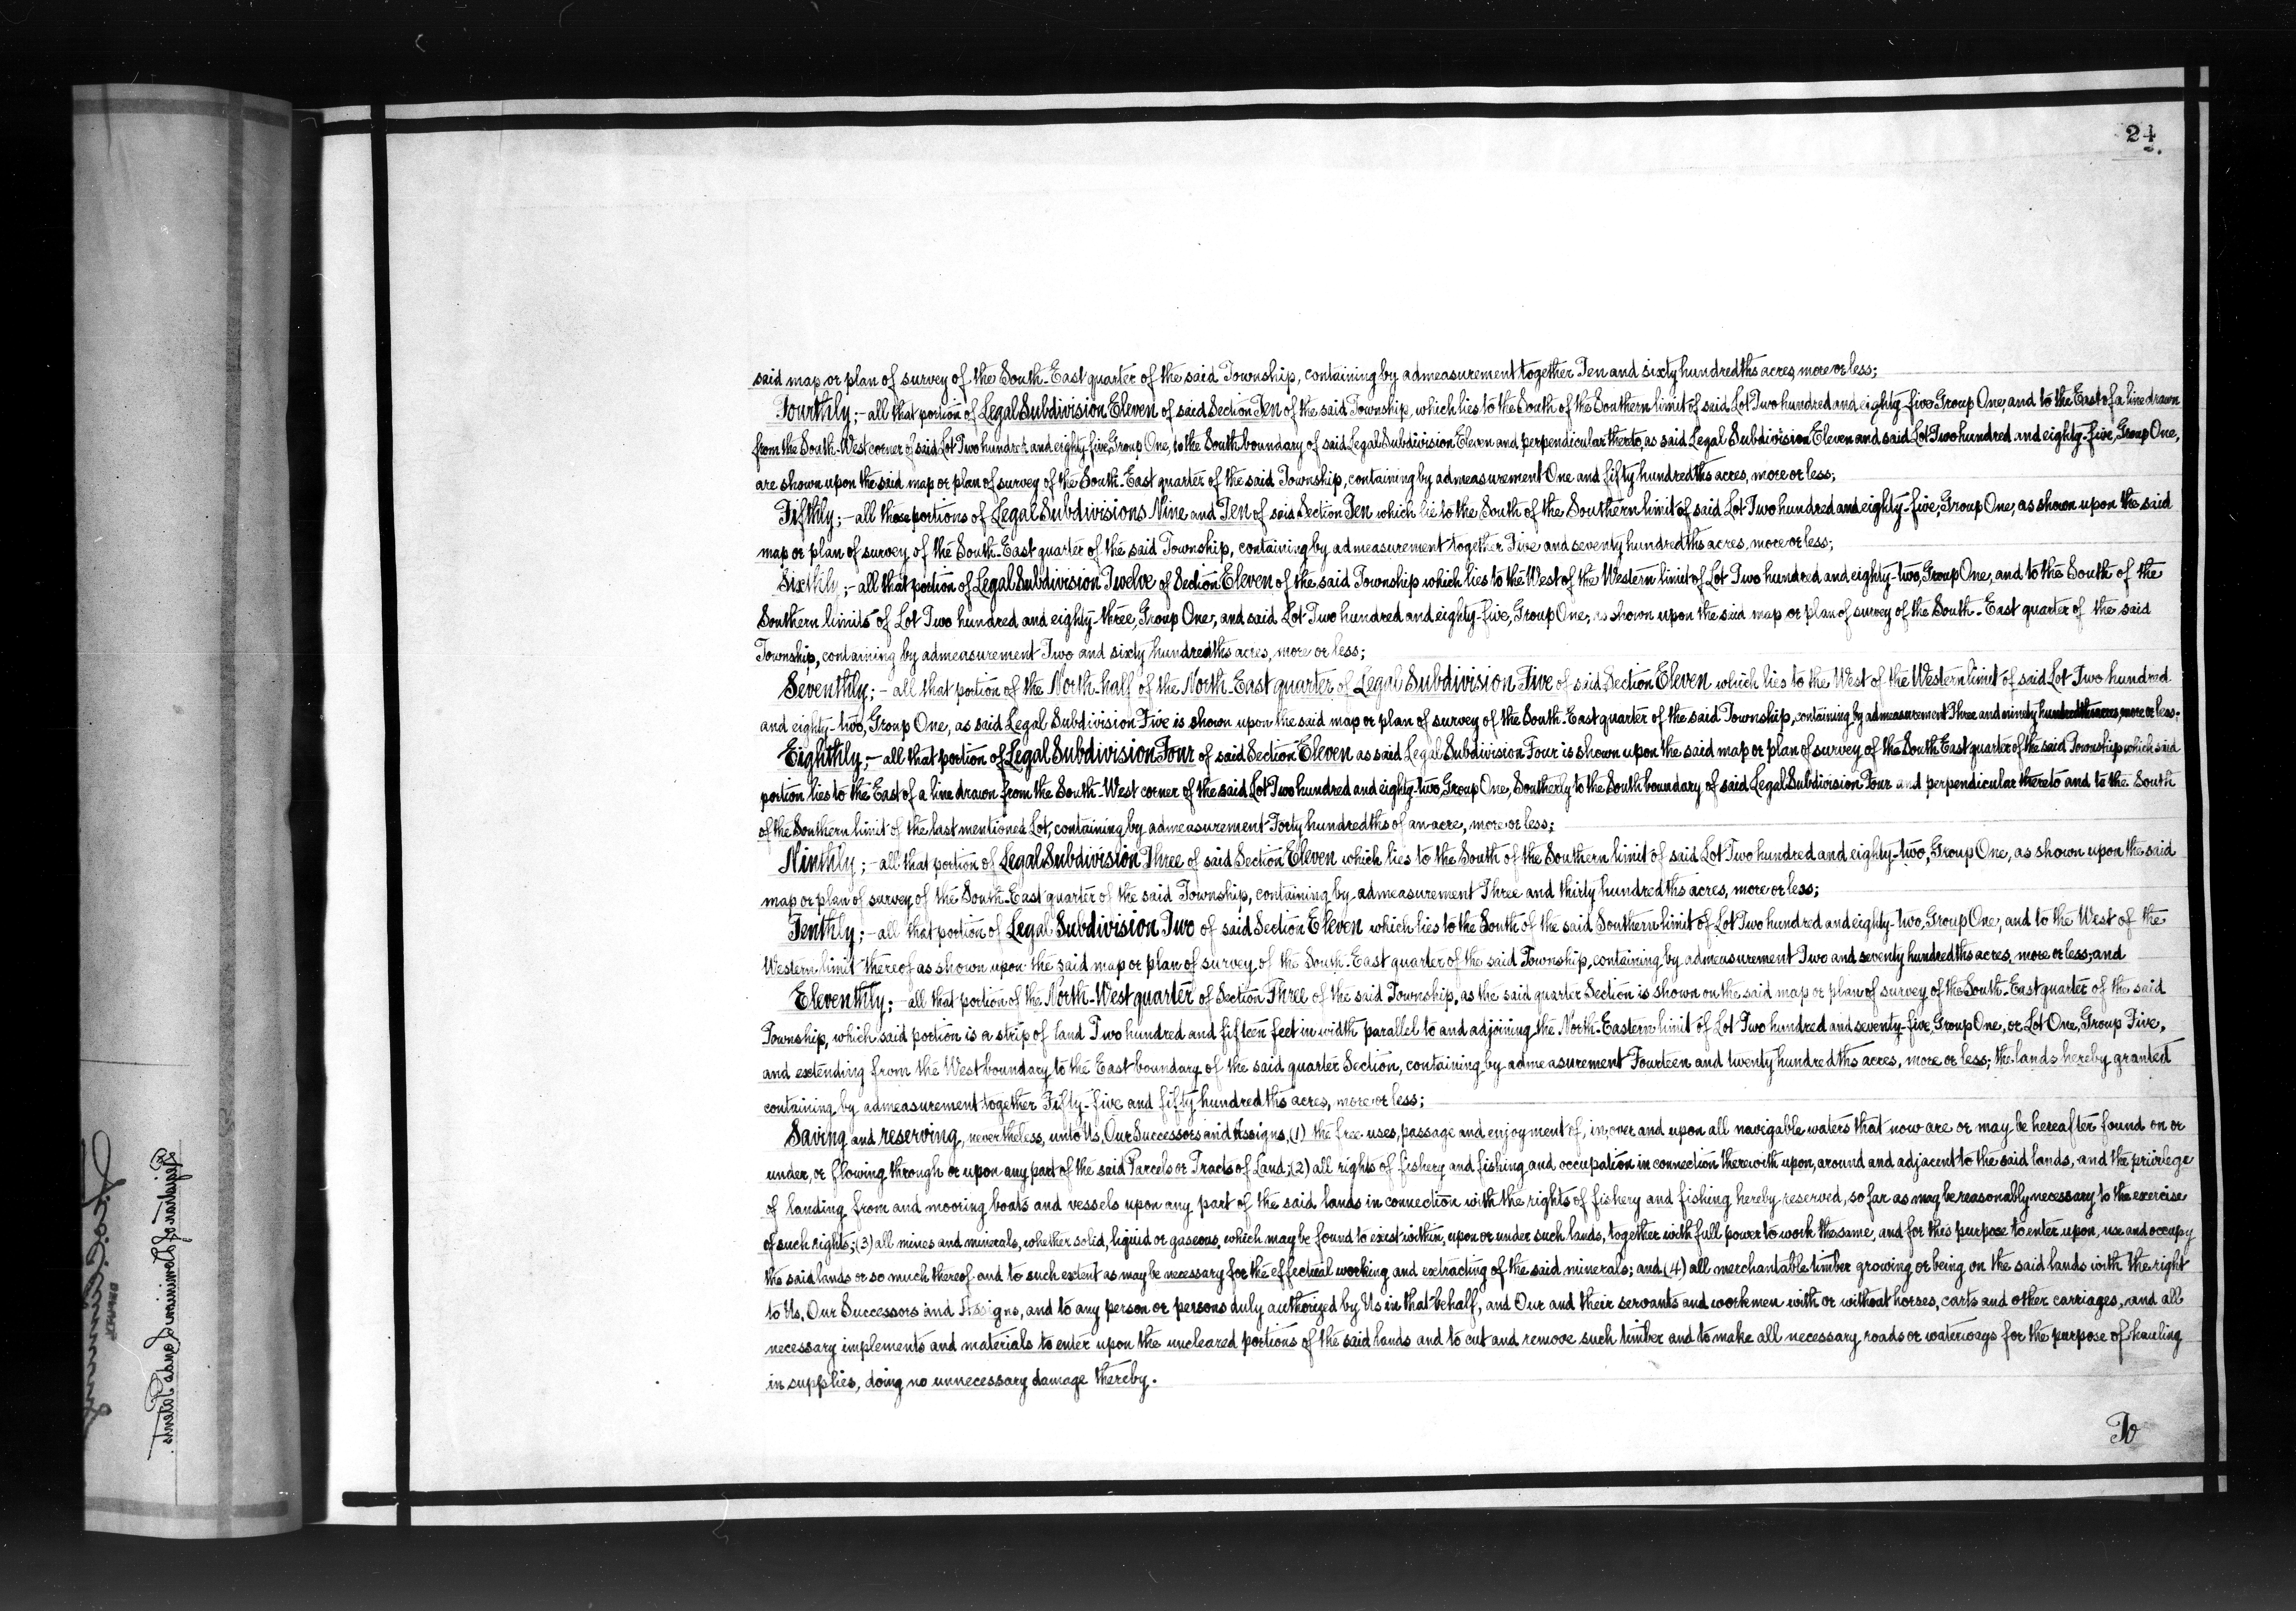 24
said map or plan of survey of the South-East quarter of the said Township, containing by admeasurement together Ten and sixty hundredths acres, more or less;
Fourthly;- all that portion of Legal Subdivision Eleven of said Section Ten of the said Township, which lies to the South of the Southern limit of said Lot Two hundred and eighty-five, Group One, and to the East of a line drawn
from the South-West corner of said Lot Two hundred and eighty-five, Group One, to the South boundary of said Legal Subdivision Eleven and perpendicular thereto, as said Legal Subdivision Eleven and said Lot Two hundred and eighty-five, Group One,
are shown upon the said map or plan of survey of the South-East quarter of the said Township, containing by admeasurement One and fifty hundredths acres, more or less;
Fifthly;- all those portions of Legal Subdivisions Nine and Ten of said Section Ten which lie to the South of the Southern limit of said Lot Two hundred and eighty-five, Group One, as shown upon the said
map or plan of survey of the South-East quarter of the said Township, containing by admeasurement together Five and seventy hundredths acres, more or less;
Sixthly;- all that portion of Legal Subdivision Twelve of Section Eleven of the said Township which lies to the West of the Western limit of Lot Two hundred and eighty-two, Group One, and to the South of the
Southern limits of Lot Two hundred and eighty-three, Group One, and said Lot Two hundred and eighty-five, Group One, as shown upon the said map or plan of survey of the South-East quarter of the said
Township, containing by admeasurement Two and sixty hundredths acres, more or less;
Seventhly;- all that portion of the North-half of the North-East quarter of Legal Subdivision Five of said Section Eleven which lies to the West of the Western limit of said Lot Two hundred
and eighty-two, Group One, as said Legal Subdivision Five is shown upon the said map or plan of survey of the South-East quarter of the said Township, containing by admeasurement Three and ninety hundredths acres, more or less.
Eighthly;- all that portion of Legal Subdivision Four of said Section Eleven as said Legal Subdivision Four is shown upon the said map or plan of survey of the South East quarter of the said Township which said
portion lies to the East of a line drawn from the South-West corner of the said Lot Two hundred and eighty-two, Group One, Southerly to the South boundary of said Legal Subdivision Four and perpendicular thereto and to the South
of the Southern limit of the last mentioned Lot, containing by admeasurement Forty hundredths of an acre, more or less;
Ninthly;- all that portion of Legal Subdivision Three of said Section Eleven which lies to the South of the Southern limit of said Lot Two hundred and eighty-two, Group One, as shown upon the said
map or plan of survey of the South-East quarter of the said Township, containing by admeasurement Three and thirty hundredths acres, more or less;
Tenthly;- all that portion of Legal Subdivision Two of said Section Eleven which lies to the South of the said Southern limit of Lot Two hundred and eighty-two, Group One, and to the West of the
Western limit thereof as shown upon the said map or plan of survey of the South-East quarter of the said Township, containing by admeasurement Two and seventy hundredths acres, more or less; and
Eleventhly;- all that portion of the North-West quarter of Section Three of the said Township, as the said quarter Section is shown on the said map or plan of survey of the South-East quarter of the said
Township, which said portion is a strip of land Two hundred and fifteen feet in width parallel to and adjoining the North-Eastern limit of Lot Two hundred and seventy-five, Group One, or Lot One, Group Five,
and extending from the West boundary to the East boundary of the said quarter Section, containing by admeasurement Fourteen and twenty hundredths acres, more or less; the lands hereby granted
containing by admeasurement together Fifty-five and fifty hundredths acres, more or less;
Saving and reserving, nevertheless, unto Us, Our Successors and Assigns, (1) the free uses, passage and enjoyment of, in, over and upon all navigable waters that now are or may be hereafter found on or
under, or flowing through or upon any part of the said Parcels or Tracts of Land; (2) all rights of fishery and fishing and occupation in connection therewith upon, around and adjacent to the said lands, and the privilege
of landing from and mooring boats and vessels upon any part of the said lands in connection with the rights of fishery and fishing hereby reserved, so far as may be reasonably necessary to the exercise
of such rights; (3) all mines and minerals, whether solid, liquid or gaseous, which may be found to exist within, upon or under such lands, together with full power to work the same, and for this purpose to enter upon, use and occupy
the said lands or so much thereof and to such extent as may be necessary for the effectual working and extracting of the said minerals; and (4) all merchantable timber growing or being on the said lands with the right
to Us, Our Successors and Assigns, and to any person or persons duly authorized by Us in that behalf, and Our and their servants and workmen with or without horses, carts and other carriages, and all
necessary implements and materials to enter upon the uncleared portions of the said lands and to cut and remove such timber and to make all necessary roads or waterways for the purpose of hauling
in supplies, doing no unnecessary damage thereby.
To
Registrar of Dominion Lands Patents.